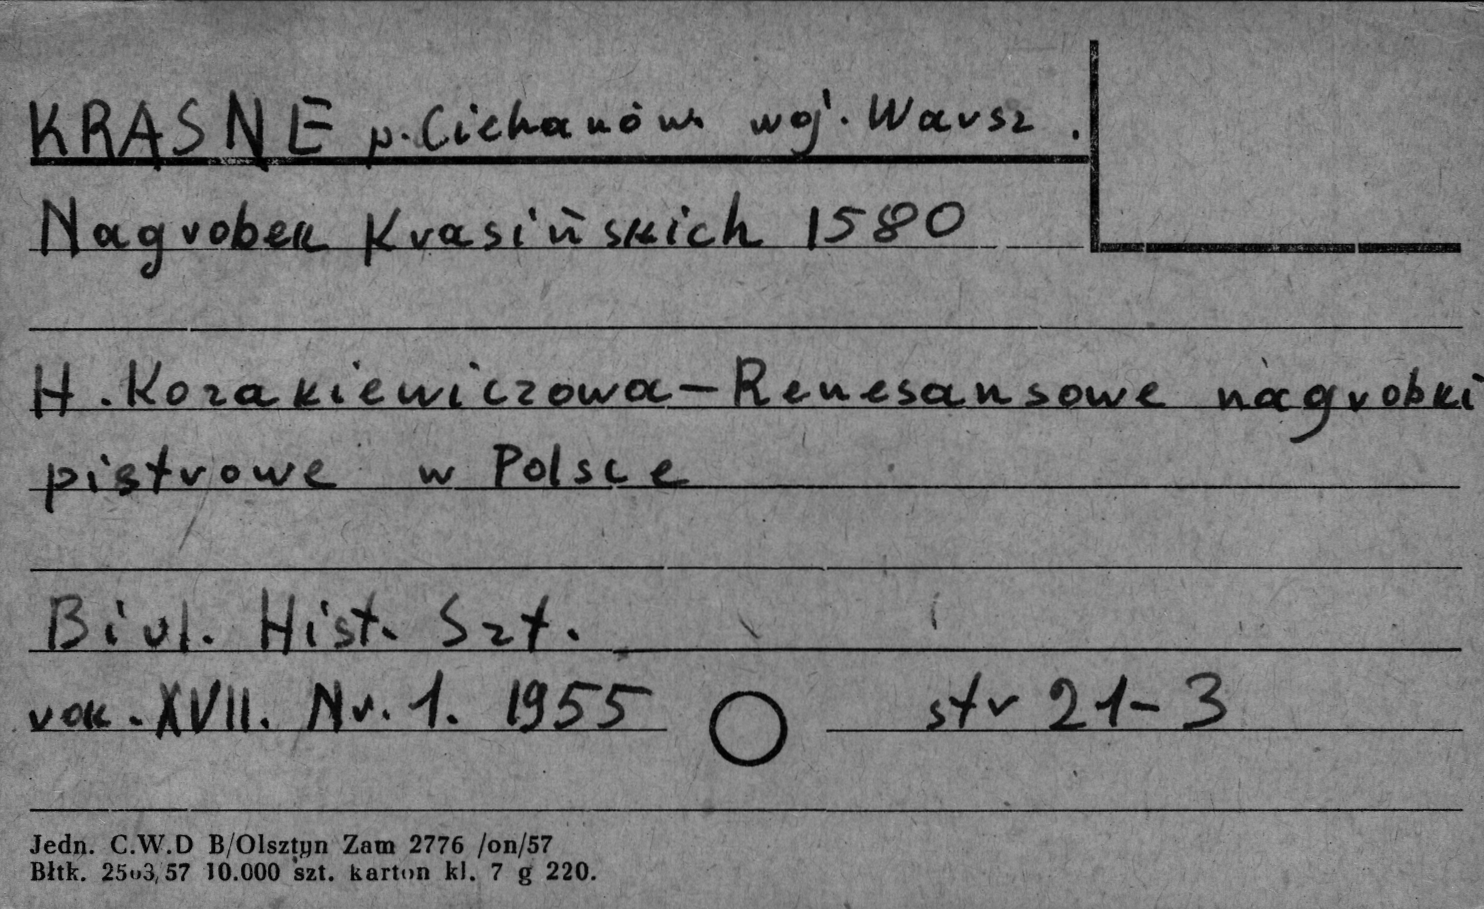 KRASNE p. Ciehanów woj. Warsz.
Nagrobek Krasińskich 1580
H. Kozakiewiczowa – Renesansowe nagrobki
pistrowe w Polsce
Biul. Hist. Szt.
rok. XVII. Nr. 1. 1955 str 21-3
Jedn. C.W.D B/Olsztyn Zam 2776 /on/57
Błtk. 2503/57 10.000 szt. karton kl. 7 g 220.